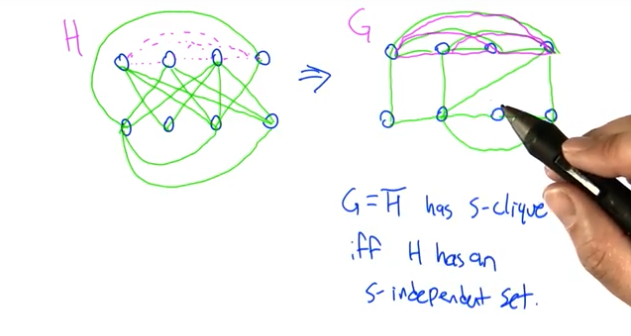 H
G
G = H̅ has s-clique
iff H has an
s-independent set.